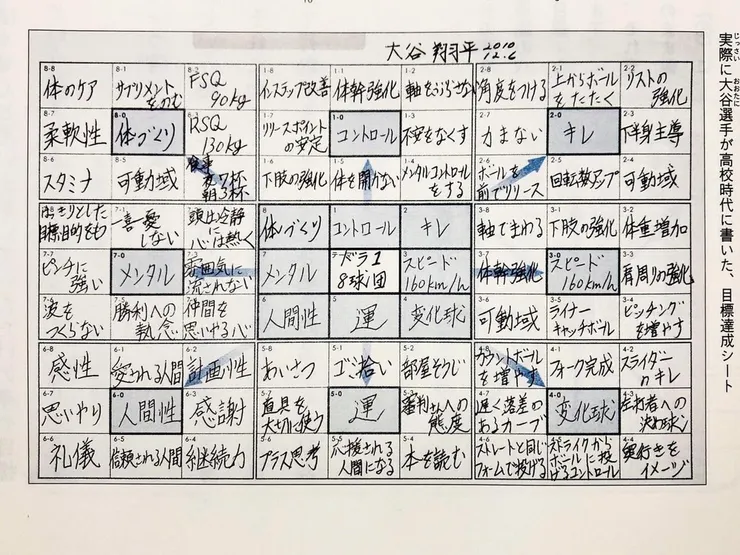 大谷 翔平 2010 12.6
実際に大谷選手が高校時代に書いた、目標達成シート
じっさい
おおたに
8-8
体のケア
8-1
サプリメント
をのむ
8-2
FSQ
90kg
1-8
インステップ改善
1-1
体幹強化
1-2
軸をぶらさない
2-8
角度をつける
2-1
上からボール
をたたく
2-2
リストの
強化
8-7
柔軟性
8-0
体づくり
RSQ
130kg
1-7
リリースポイント
の安定
1-0
コントロール
1-3
不安をなくす
2-7
力まない
2-0
キレ
2-3
下半身主導
8-6
スタミナ
8-5
可動域
食事
夜7杯
朝3杯
1-6
下肢の強化
1-5
体を開かない
1-4
メンタルコントロール
をする
2-6
ボールを
前でリリース
2-5
回転数アップ
2-4
可動域
はっきりとした
目標、目的をもつ
7-1
一喜一憂
しない
頭は冷静
に心は熱く
8
体づくり
1
コントロール
2
キレ
3-8
軸でまわる
3-1
下肢の強化
3-2
体重増加
7-7
ピンチに
強い
7-0
メンタル
7-3
雰囲気に
流されない
7
メンタル
ドラ1
8球団
3
スピード
160km/h
3-7
体幹強化
3-0
スピード
160km/h
3-3
肩周りの強化
7-6
波を
つくらない
7-5
勝利への
執念
7-4
仲間を
思いやる心
6
人間性
5
運
4
変化球
3-6
可動域
3-5
ライナー
キャッチボール
3-4
ピッチング
を増やす
6-8
感性
6-1
愛される人間
6-2
計画性
5-8
あいさつ
5-1
ゴミ拾い
5-2
部屋そうじ
4-8
カウントボール
を増やす
4-1
フォーク完成
4-2
スライダー
のキレ
6-7
思いやり
6-0
人間性
6-3
感謝
5-7
道具を
大切に使う
5-0
運
5-3
審判さんへの
態度
4-7
遅く落差の
あるカーブ
4-0
変化球
4-3
左打者への
決め球
6-6
礼儀
6-5
信頼される人間
6-4
継続力
5-6
プラス思考
5-5
応援される
人間になる
5-4
本を読む
4-6
ストレートと同じ
フォームで投げる
ストライクから
ボールに投
げるコントロール
4-4
奥行きを
イメージ